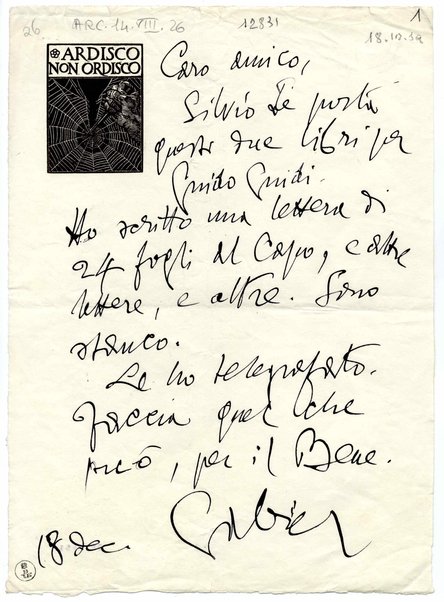 26
ARC. 14. VIII. 26
12831
1
18.12.34
ARDISCO
NON ORDISCO
Caro amico,
Silvio Le porta
questi due libri per
Guido Guidi.
Ho scritto una lettera di
24 fogli al Capo, e altre
lettere, e altre. Sono
stanco.
Le ho telegrafato.
Faccia quel che
può, per il Bene.
Gabriel
18 dec.